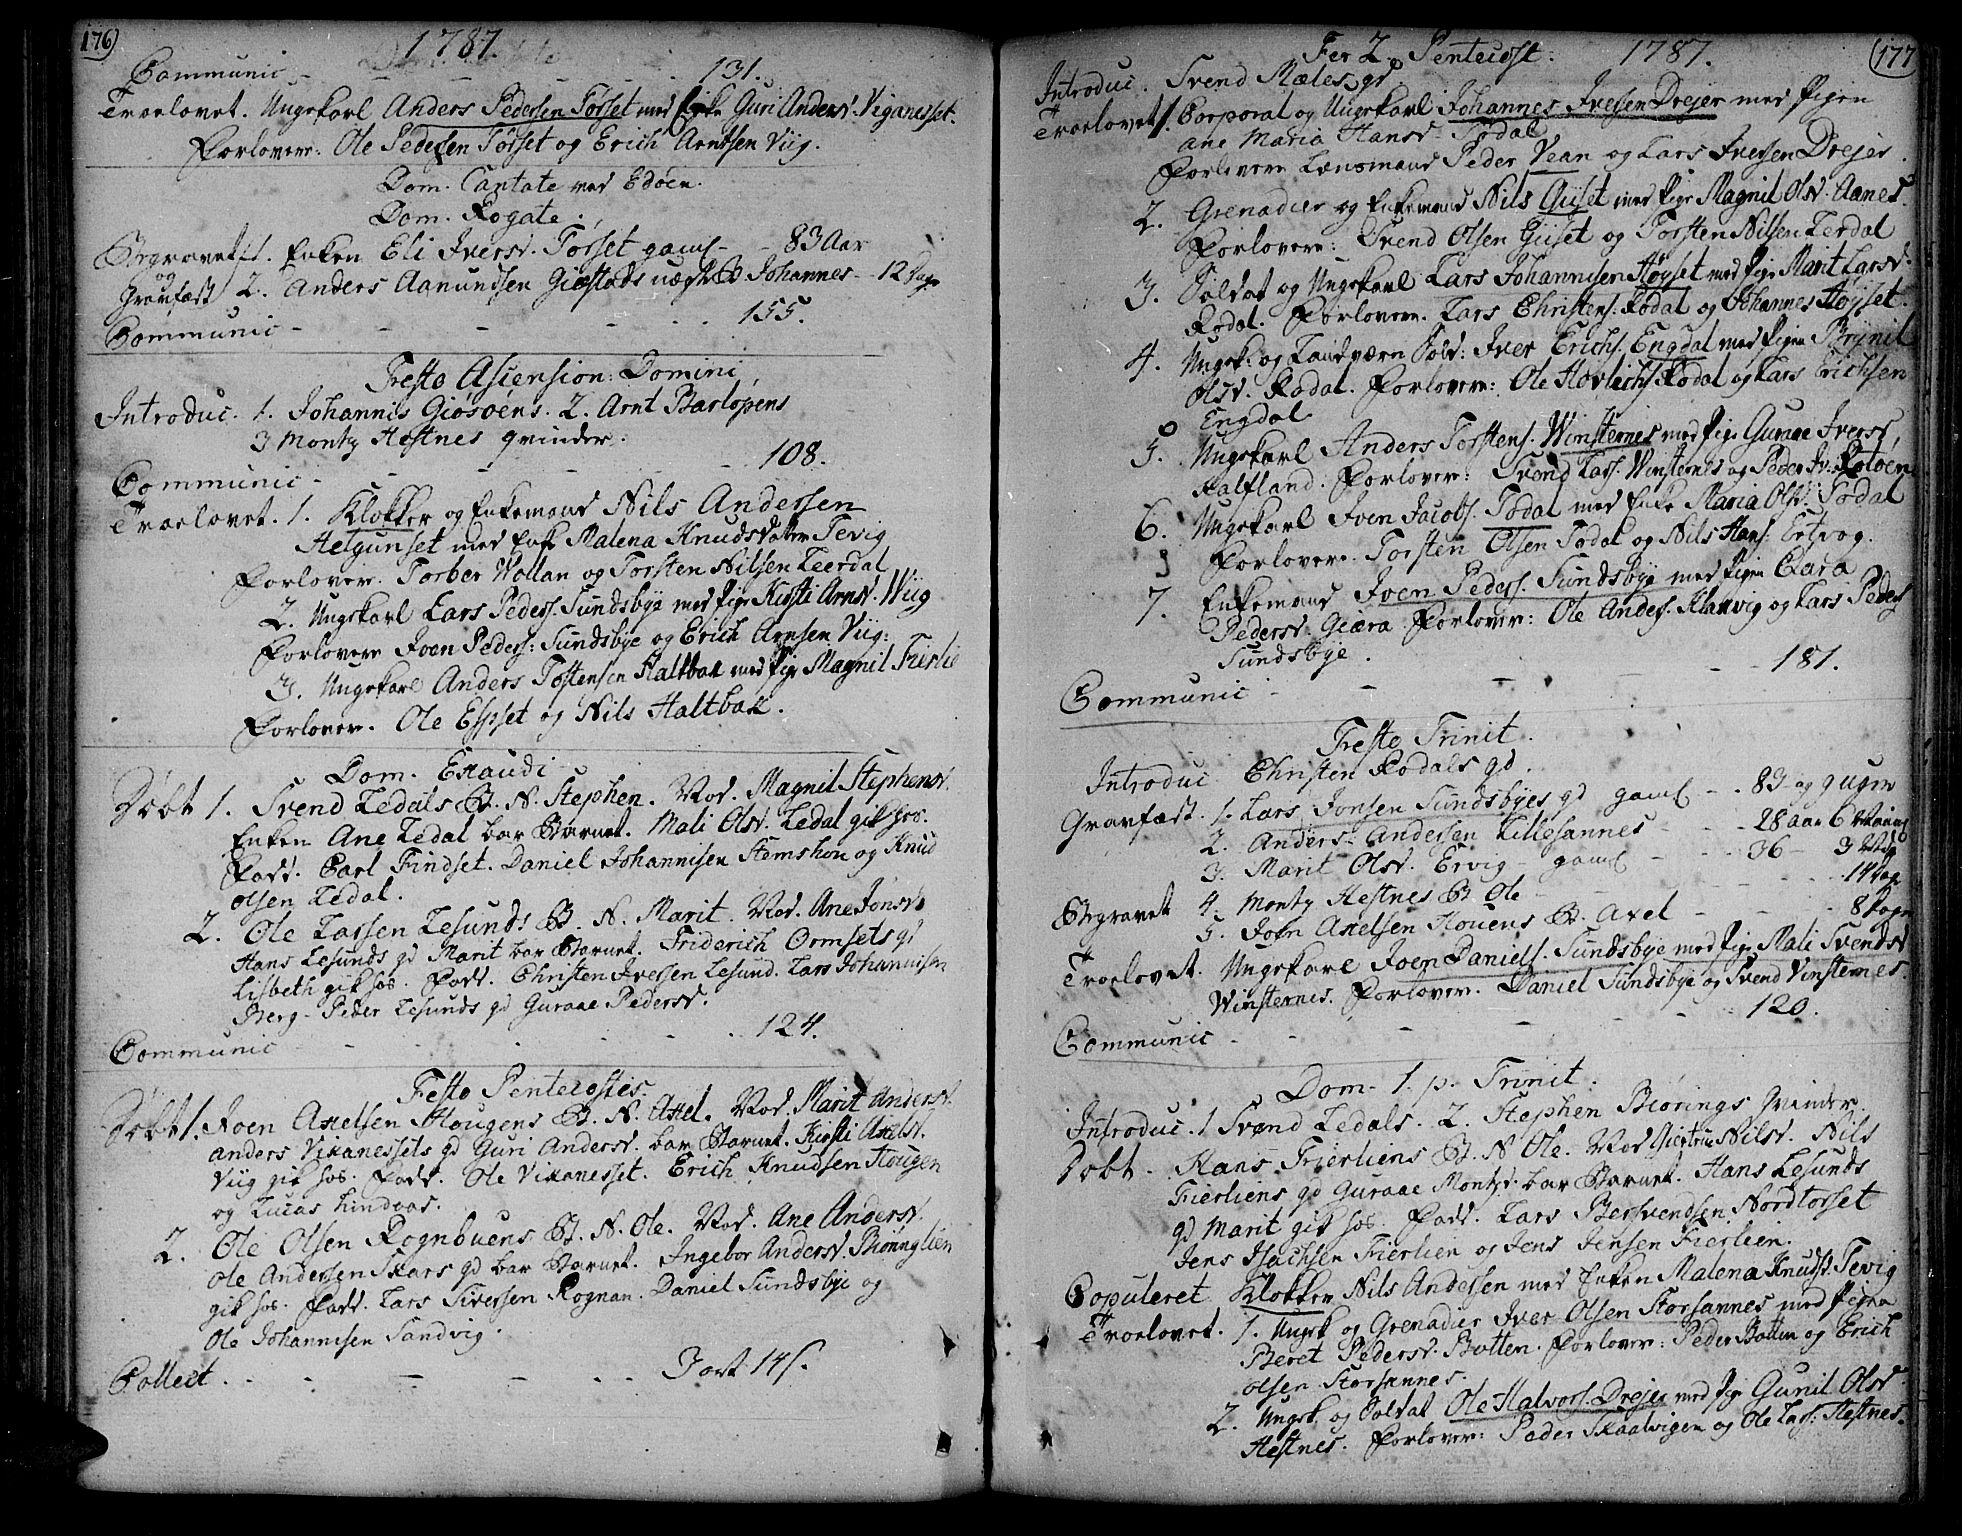 176) 1787
Communic - - - 131.
Troelovet. Ungekarl Anders Pedersen Torset med Enke Guri Andersd. Viganesset.
Forlovere: Ole Pedersen Torset og Erich Arntsen Viig.
Dom. Cantate ved Edöen.
Dom. Rogate.
Begravet 1. Enken Eli Iversd. Torset gaml - - 83 Aar
og
Gravfæst 2. Anders Aanundsen Giestads B Johannes - 12 Dage
Communic - - - - 155.
Festo Ascension: Domini,
Introduc. 1. Johannis Giøsøens. 2. Arnt Barlopens
3 Montz Hestnes qvinder.
Communic - - - - 108.
Troelovet. 1. Klokker og Enkemand Nils Andersen
Helgunset med Enke Malena Knudsdatter Tevig
Forlover. Torber Wollan og Torsten Nilsen Leerdal
2. Ungekarl Lars Peders. Sundsbye med Pige Kirsti Arnsd. Wiig
Forlovere Joen Peders: Sundsbye og Erich Arnsen Viig:
3. Ungekarl Anders Tostensen Haltbak med Pige Magnil Fierlie
Forlover. Ole Espset og Nils Haltbak.
Dom. Exaudi
Döbt 1. Svend Ledals B. N. Stephen. Mod. Magnil Stephensd.
Enken Ane Ledal bar Barnet. Mali Olsd. Ledal gik hos.
Fadd. Carl Findset. Daniel Johannisen Stemshou og Knud
Olsen Ledal.
2. Ole Larsen Lesunds B. N. Marit. Mod. Ane Jonsd.
Hans Lesunds qd Marit bar Barnet. Friderich Ormsets qd
Lisbeth gik hos. Fadd. Christen Iversen Lesund. Lars Johannisen
Berg - Peder Lesunds qd Guraae Pedersd.
Communic - - - - 124.
Festo Pentecostes.
Döbt 1. Joen Axelsen Hougens B. N. Axel. Mod. Marit Andersd.
Anders Vikanessets qd Guri Andersd. bar Barnet. Kirsti Axelsd.
Viig gik hos. Fadd. Ole Vikanesset. Erich Knudsen Hougen
og Lucas Lindvas.
2. Ole Olsen Rognbuens B. N. Ole. Mod. Ane Andersd.
Ole Andersen Skars qd bar Barnet. Ingebor Andersd. Biönnglien
gik hos. Fadd. Lars Siversen Rognan. Daniel Sundsbye og
Ole Johannisen Sandvig.
Collect. - - - -
Fer 2 Pentecost: 1787. (177
Introduc. Svend Mæles qd.
Troelovet 1. Corporal og Ungekarl Johannes Iversen Drejer med Pigen
Ane Maria Hansd. Todal
Forlovere Lensmand Peder Vean og Lars Iversen Drejer.
2. Grenadier og Enkemand Nils Giiset med Pige Magnil Olsd. Aanes.
Forlovere: Svend Olsen Giiset og Torsten Nilsen Lerdal
3. Soldat og Ungekarl Lars Johannisen Höyset med Pige Marit Larsd.
Rodal. Forlovere. Lars Christens. Rodal og Johannes Höyset.
4. Ungek: og Landværn Sold: Iver Erichs. Engdal med Pigen Brynil
Olsd. Rodal. Forlovere: Ole Rodal og Lars Erichsen
Engdal
5. Ungekarl Anders Torstens. Winsternes med Pige Guraae Iversd.
Kalfland. Forlovere: Svend Lars. Winsternes og Peder Iv. Rotöen
6. Ungekarl Joen Jacobs. Todal med Enke Maria Olsd. Todal
Forlovere. Torsten Olsen Todal og Nils Hans. Ertvog.
7. Enkemand Joen Peders. Sundsbye med Pigen Clara
Pedersd. Giæra. Forlover: Ole Anders. Klakvig og Lars Peders
Sundsbye.
Communic - - - - 181.
Festo Trinit.
Introduc Christen Rodals qd.
Gravfæst. 1. Lars Jonsen Sundsbyes qd gaml - 83 og 9 uger
2. Anders Andersen Lillesannes - - 28 aar 6
3. Marit Olsd. Ervig - gaml - - 36 - 3
Begravet 4. Montz Hestnes B. Ole - - - 14 dag
5. Joen Axelsen Houens B. Axel - - - 8 dage
Troelovet. Ungekarl Joen Daniels. Sundsbye med Pige Mali Svendsd
Winsternes. Forlover. Daniel Sundsbye og Svend Vinsternes.
Communic - - - - 120.
Dom. 1. p. Trinit.
Introduc. 1 Svend Ledals. 2. Stephen Biørings qvinder
Döbt. Hans Fierliens B. N Ole. Mod Giertrue Nilsd. Nils
Fierliens qd Guraae Montzd. bar Barnet. Hans Lesunds
qd Marit gik hos. Fadd. Lars Bersvendsen Nordtorset
Jens Isachsen Fierlien og Jens Jensen Fierlien.
Copuleret Klokker Nils Andersen med Enken Malena Knudsd. Tevig
Troelovet. 1. Ungek og Grenadier Iver Olsen Storsannes med Pigen
Beret Pedersd. Botten. Forlover: Peder Botten og Erich
Olsen Storsannes.
2. Ungek og Soldat Ole Halvors. Drejer med Pige Gunil Olsd
Hestnes. Forlover: Peder Skaalvigen og Ole Lars: Hestnes.